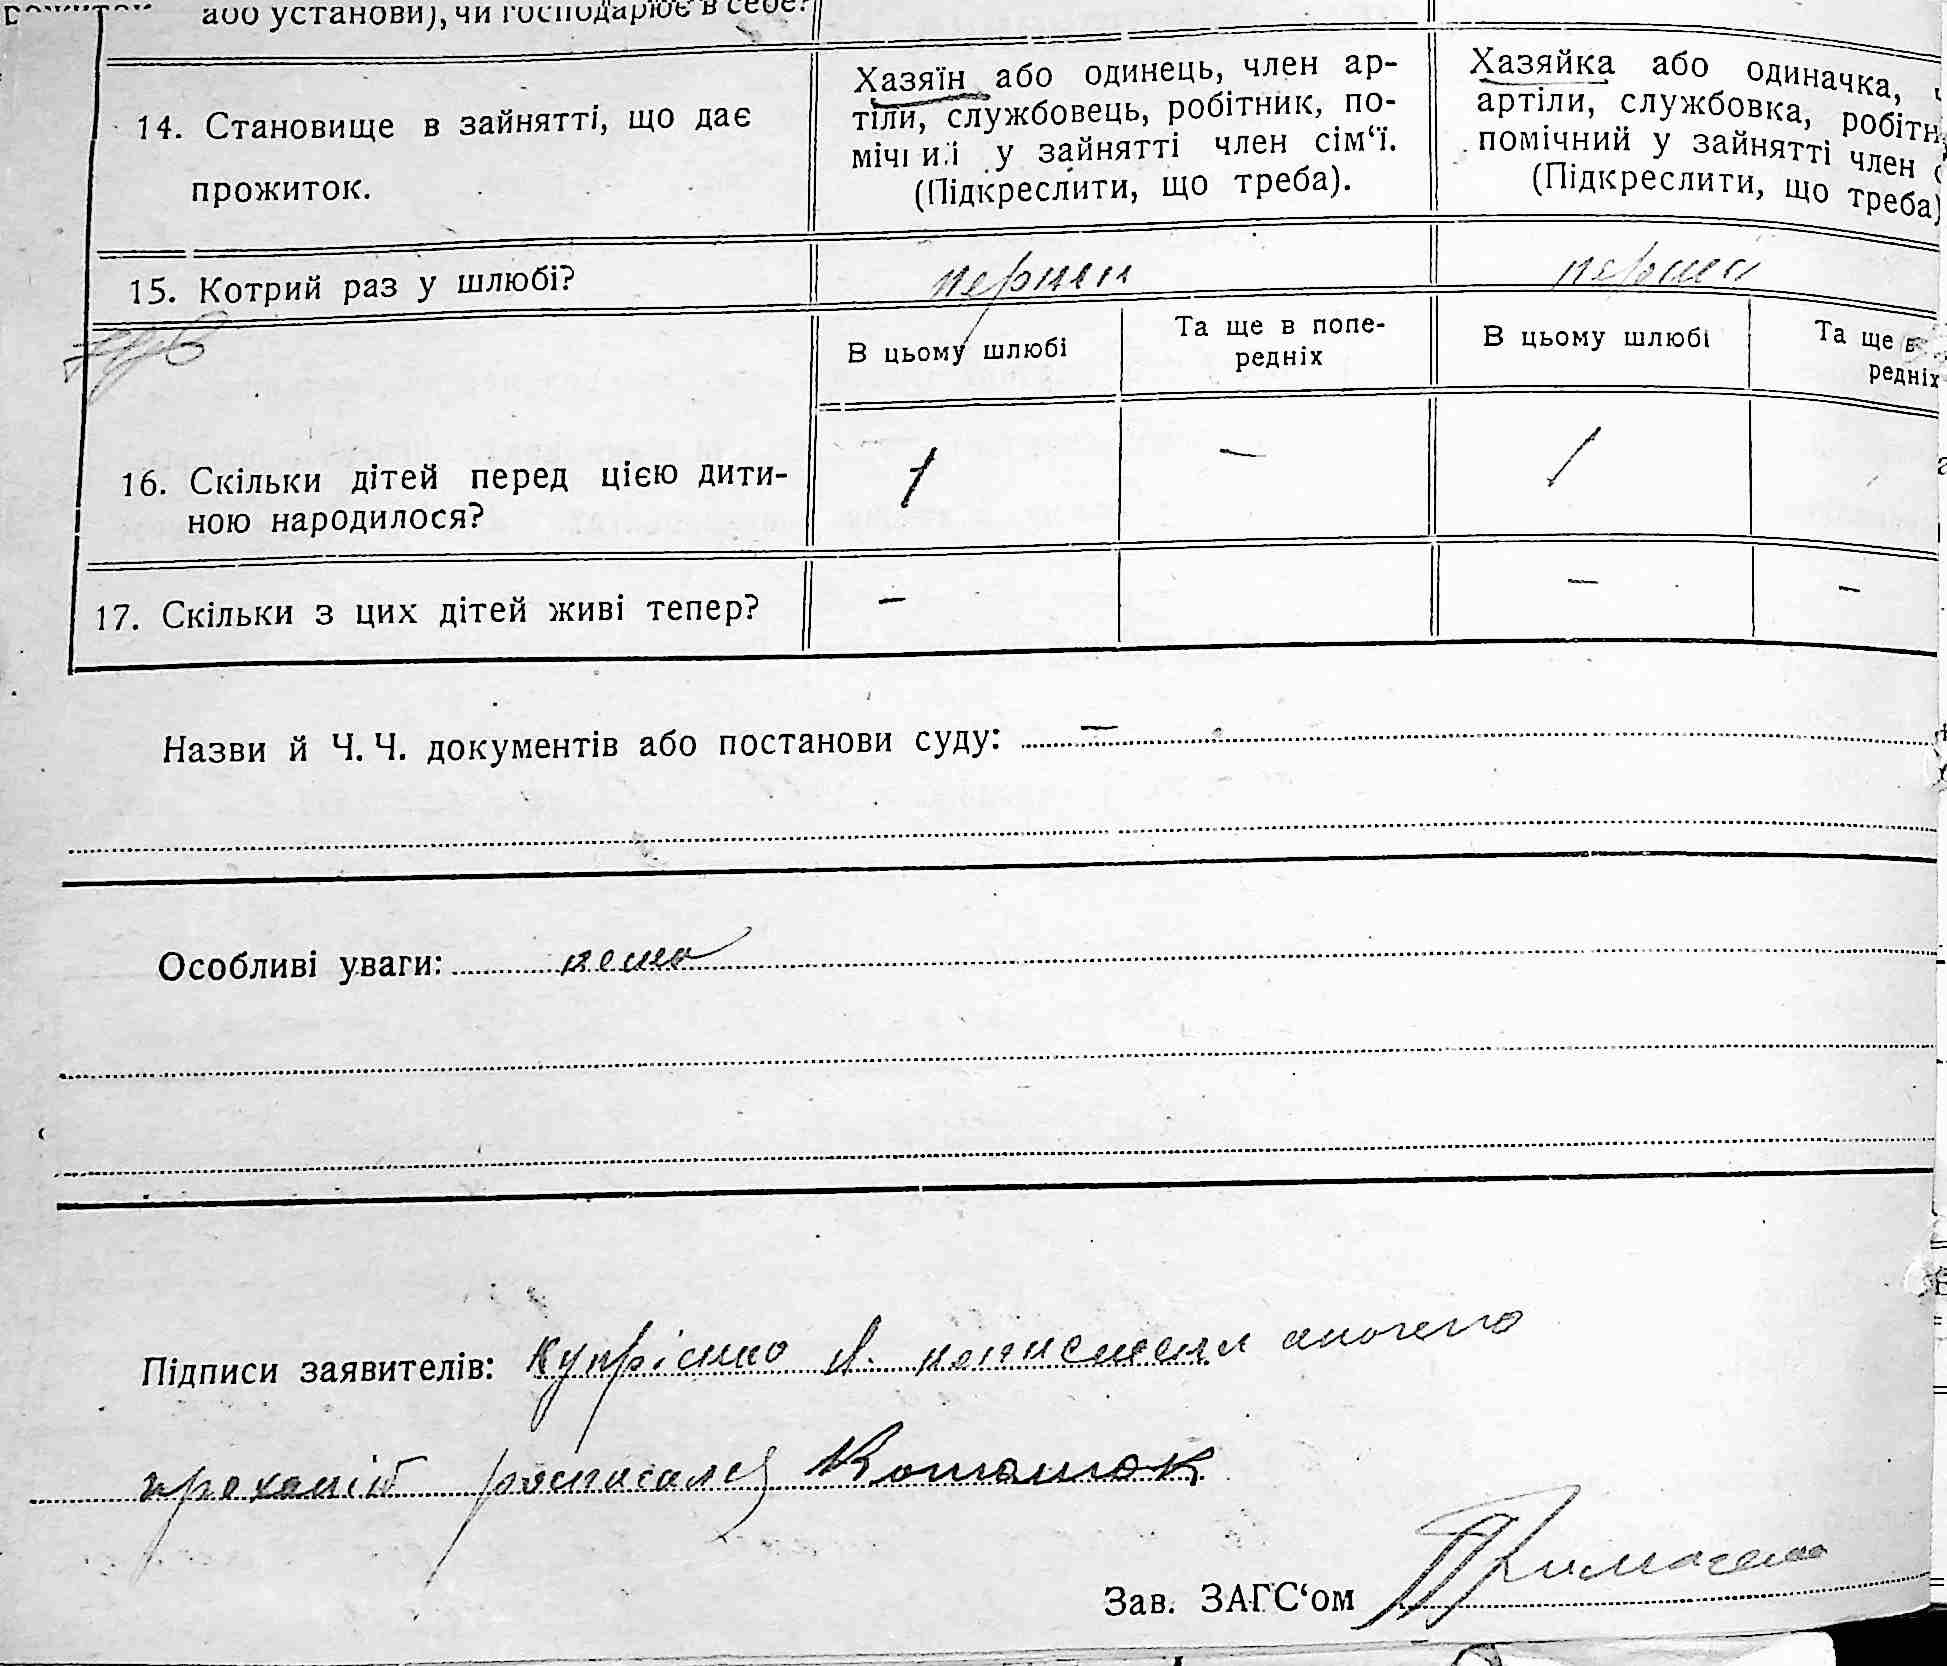 або установи), чи господарює в себе?
14. Становище в зайнятті, що дає
прожиток.
Хазяїн або одинець, член ар-
тіли, службовець, робітник, по-
мічний у зайнятті член сім‘ї.
(Підкреслити, що треба).
Хазяйка або одиначка,
артіли, службовка, робітн
помічний у зайнятті член
(Підкреслити, що треба)
15. Котрий раз у шлюбі?
перший
перший
В цьому шлюбі
Та ще в попе-
редніх
В цьому шлюбі
Та ще в
редніх
16. Скільки дітей перед цією дити-
ною народилося?
1
—
1
17. Скільки з цих дітей живі тепер?
—
—
—
Назви й Ч. Ч. документів або постанови суду: —
Особливі уваги: нема
Підписи заявителів: Купрієнко
росписался
Зав. ЗАГС‘ом